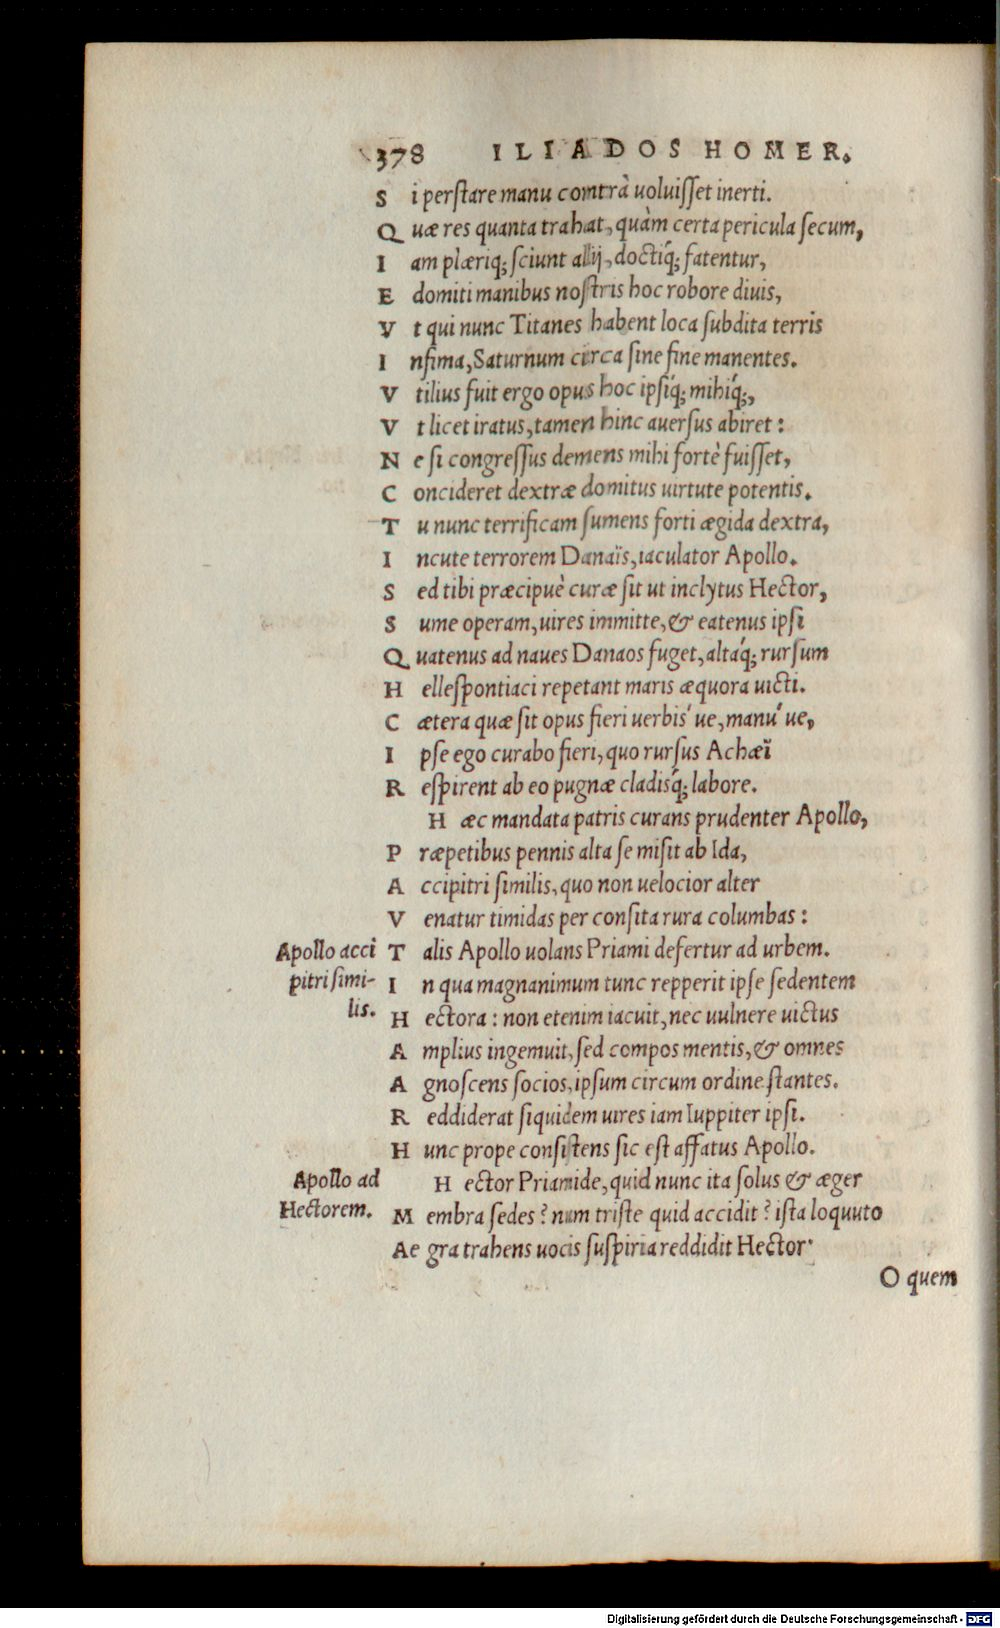 378 ILIADOS HOMER.
S i perſtare manu contrà uoluiſſet inerti.
Q uæ res quanta trahat, quàm certa pericula ſecum,
I am plæriq́; ſciunt alij, doctiq́; fatentur,
E domiti manibus noſtris hoc robore diuis,
V t qui nunc Titanes habent loca ſubdita terris
I nfima, Saturnum circa ſine fine manentes.
V tilius fuit ergo opus hoc ipſiq́; mihiq́;,
V t licet iratus, tamen hinc auerſus abiret:
N e ſi congreſſus demens mihi fortè fuiſſet,
C oncideret dextræ domitus uirtute potentis.
T u nunc terrificam ſumens forti ægida dextra,
I ncute terrorem Danaïs, iaculator Apollo.
S ed tibi præcipuè curæ ſit ut inclytus Hector,
S ume operam, uires immitte, & eatenus ipſi
Q uatenus ad naues Danaos fuget, altaq́; rurſum
H elleſpontiaci repetant maris æquora uicti.
C ætera quæ ſit opus fieri uerbis' ue, manu' ue,
I pſe ego curabo fieri, quo rurſus Achæï
R eſpirent ab eo pugnæ cladisq́; labore.
H æc mandata patris curans prudenter Apollo,
P ræpetibus pennis alta ſe miſit ab Ida,
A ccipitri ſimilis, quo non uelocior alter
V enatur timidas per conſita rura columbas:
Apollo acci T alis Apollo uolans Priami defertur ad urbem.
pitri ſimi- I n qua magnanimum tunc repperit ipſe ſedentem
lis. H ectora: non etenim iacuit, nec uulnere uictus
A mplius ingemuit, ſed compos mentis, & omnes
A gnoſcens ſocios, ipſum circum ordine ſtantes.
R eddiderat ſiquidem uires iam Iuppiter ipſi.
H unc prope conſiſtens ſic eſt affatus Apollo.
Apollo ad H ector Priamide, quid nunc ita ſolus & æger
Hectorem. M embra ſedes? num triſte quid accidit? iſta loquuto
Ae gra trahens uocis ſuſpiria reddidit Hector·
O quem
Digitalisierung gefördert durch die Deutsche Forschungsgemeinschaft - DFG